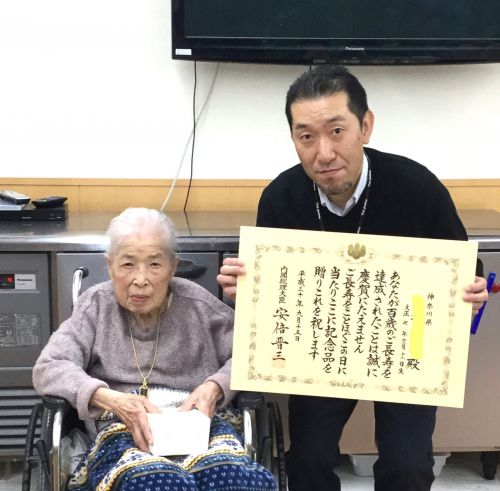 Panasonic
Panasonic
神奈川県
殿
あなたが百歳のご長寿を
達成されたことは誠に
慶賀にたえません
ご長寿をことほぐこの日に
当たりここに記念品を
贈りこれを祝します
平成三十年九月十五日
内閣総理大臣 安倍晋三